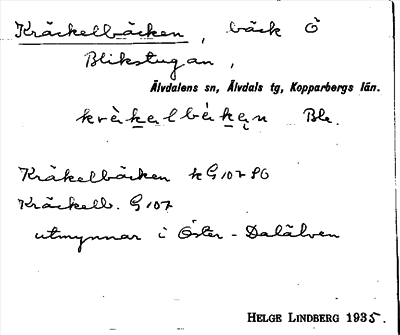 Kräckelbäcken, bäck Ö
Blikstugan,
Älvdalens sn, Älvdals tg, Kopparbergs län.
Bla.
Kräkelbäcken k G 107 80
Kräckelb. G 107
utmynnar i Öster-Dalälven
HELGE LINDBERG 1935.